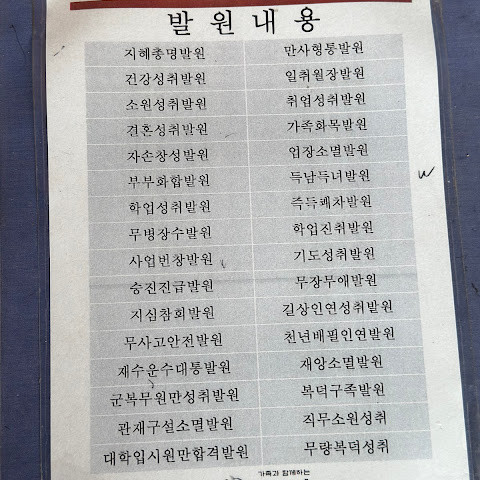 발원내용
지혜총명발원 만사형통발원
건강성취발원 일취월장발원
소원성취발원 취업성취발원
결혼성취발원 가족화목발원
자손창성발원 업장소멸발원
부부화합발원 득남득녀발원
학업성취발원 즉득쾌차발원
무병장수발원 학업진취발원
사업번창발원 기도성취발원
승진진급발원 무장무애발원
지심참회발원 길상인연성취발원
무사고안전발원 천년배필인연발원
재수운수대통발원 재앙소멸발원
군복무원만성취발원 복덕구족발원
관재구설소멸발원 직무소원성취
대학입시원만합격발원 무량복덕성취
가족과 함께하는